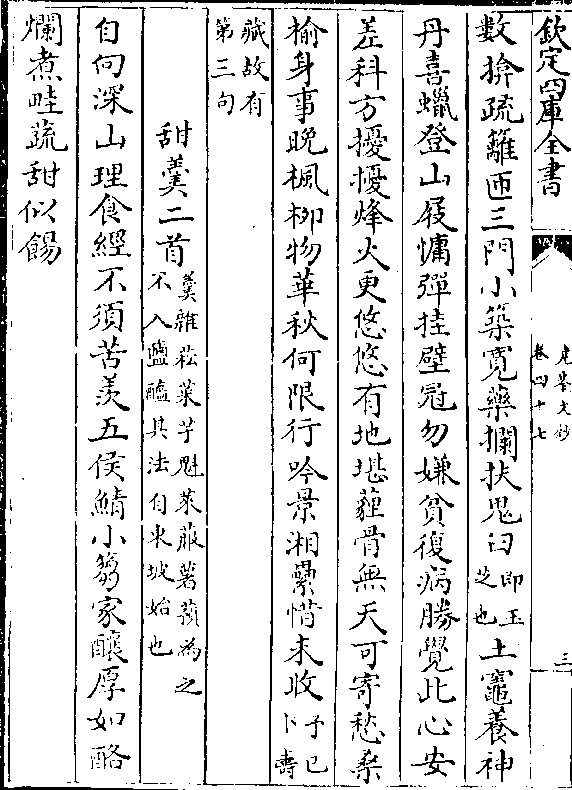 欽定四庫全書
堯峯文鈔
卷四十七
三
數拚疏籬匝三門小築寛藥攔扶鬼臼即玉芝也土竈養神
丹喜蠟登山屐慵彈挂壁冠勿嫌貧復病勝覺此心安
差科方擾擾烽火更悠悠有地堪薶骨無天可寄愁桑
榆身事晚楓柳物華秋何限行吟景湘纍惜未收予已卜壽
藏故有第三句
甜羮二首羮雜菘菜芋魁萊菔薯蕷為之不入鹽醯其法自東坡始也
自向深山理食經不須苦羨五侯鯖小芻家釀厚如酪
爛煮畦蔬甜似餳